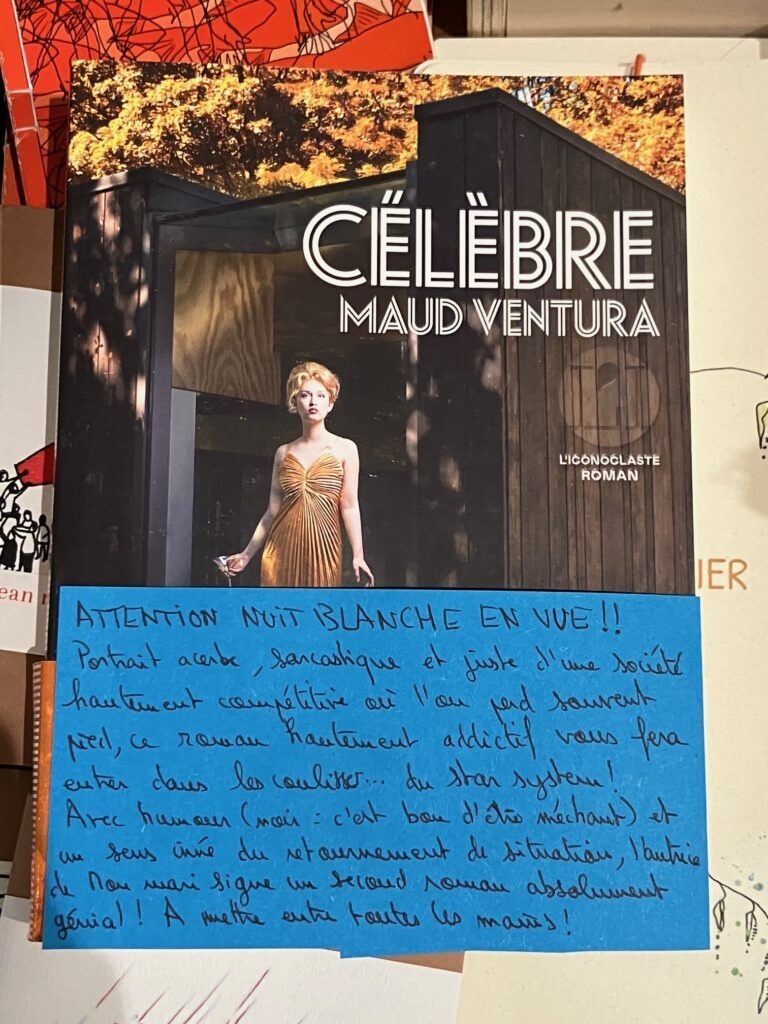 CÉLÈBRE
MAUD VENTURA
L'ICONOCLASTE
ROMAN
UER
ean
ATTENTION NUIT BLANCHE EN VUE !!
Portrait acerbe, sarcastique et juste d'une société
hautement compétitive où l'on perd souvent
pied, ce roman hautement addictif vous fera
entrer dans les coulisses... du star system !
Avec humour (noir : c'est bon d'être méchant) et
un sens inné du retournement de situation, l'autrice
de Mon mari signe un second roman absolument
génial ! A mettre entre toutes les mains !